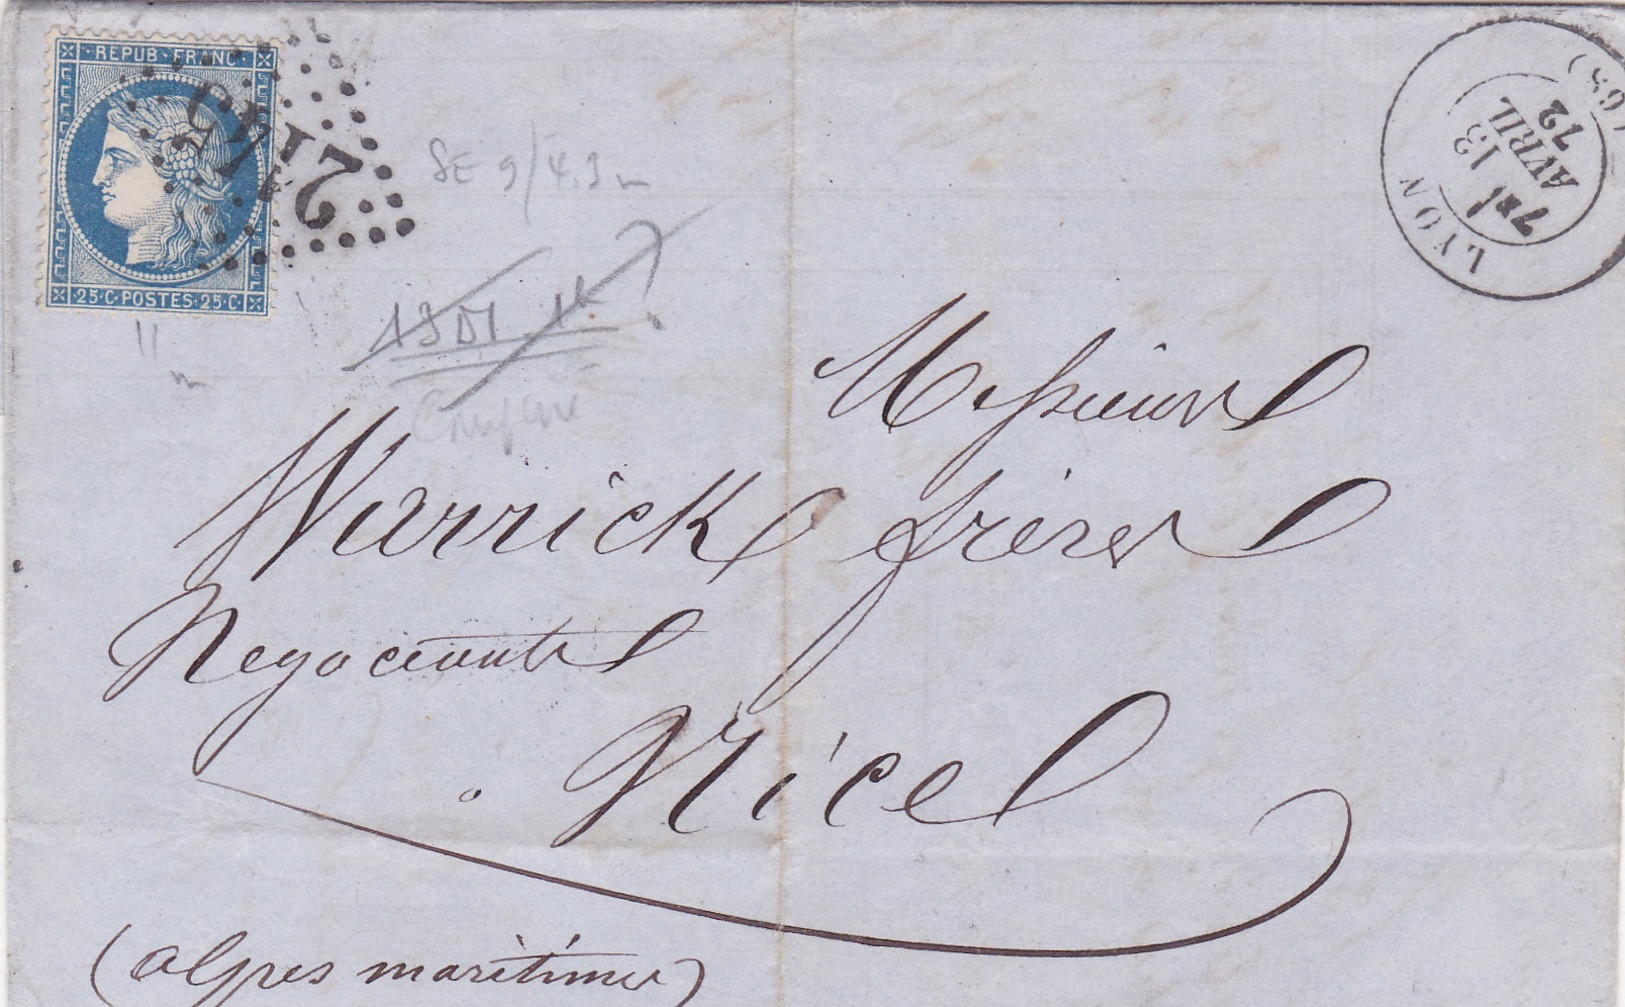 REPUB·FRANC·
25·C·POSTES·25·C
2145
LYON
(68)
7E/
13
AVRIL
72
SE 9/4.3
Messieurs
Warrick frères
Negociants
Nice
(alpes maritimes)